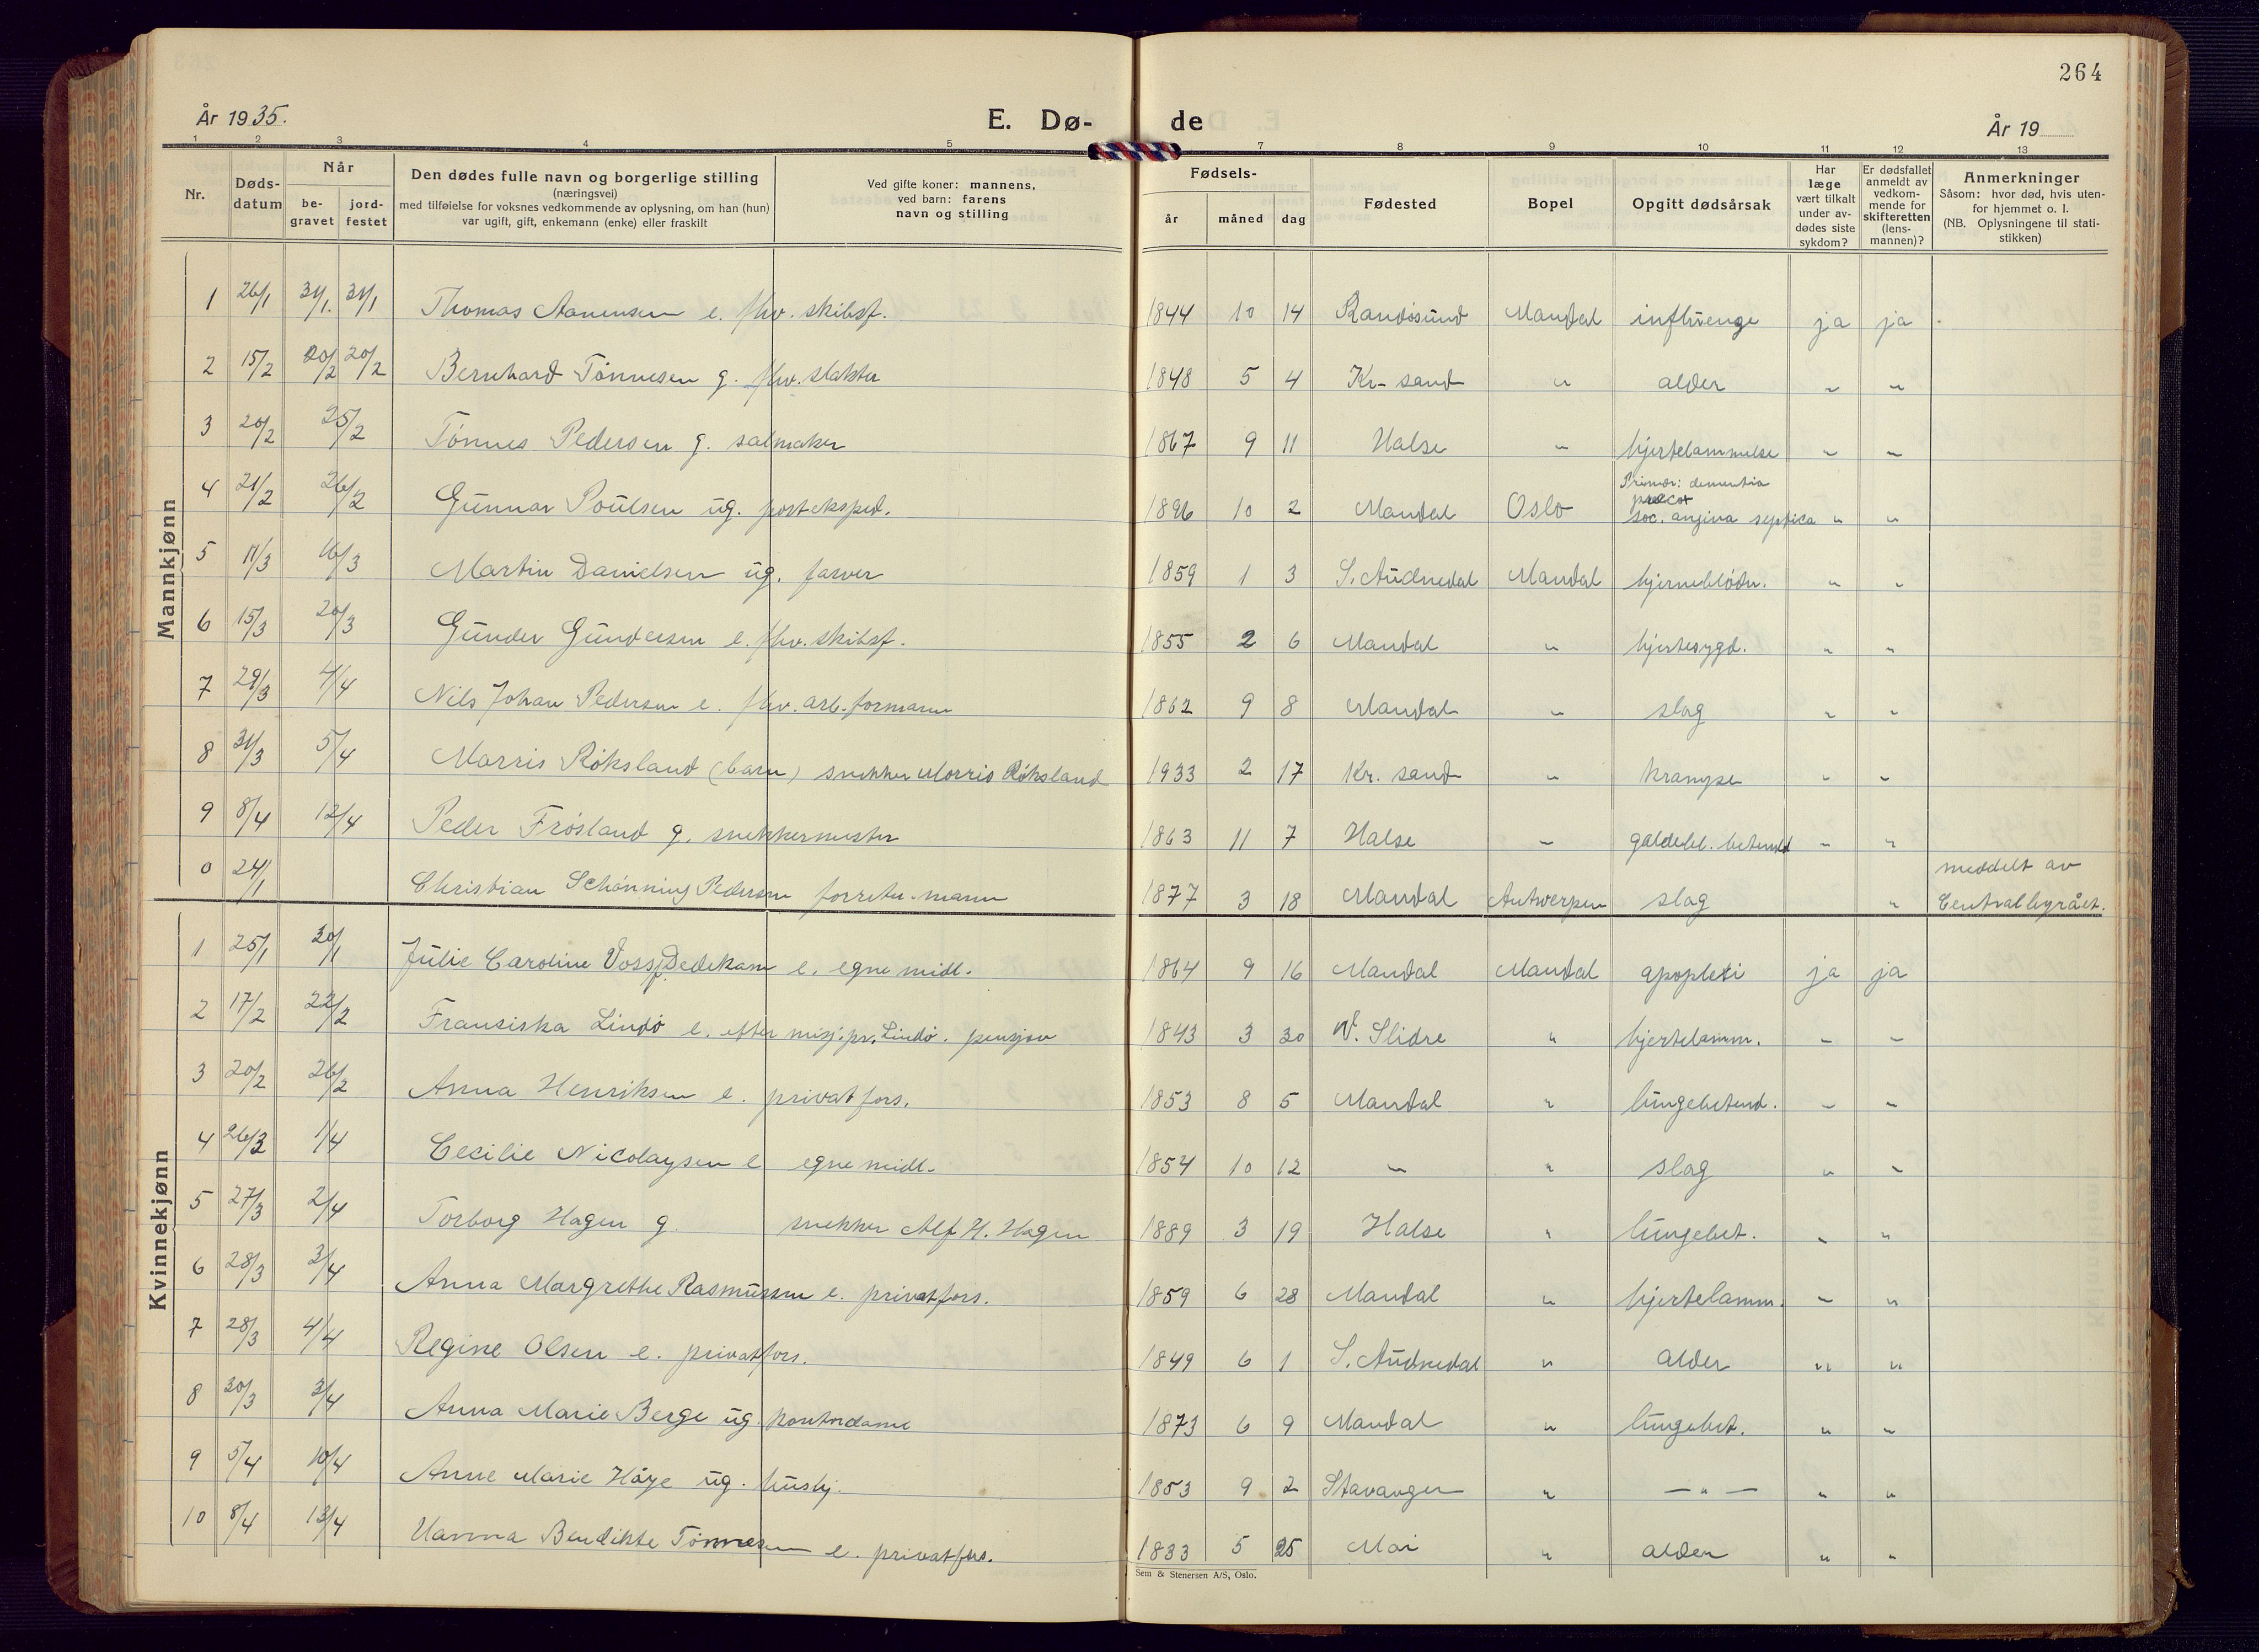 264
År 1935.
E. Dø- de
År 19
1 2 3 4 5 7 8 9 10 11 12 13
Nr.
Døds-
datum
Når
be-
gravet
jord-
festet
Den dødes fulle navn og borgerlige stilling
(næringsvei)
med tilføielse for voksnes vedkommende av oplysning, om han (hun)
var ugift, gift, enkemann (enke) eller fraskilt
Ved gifte koner: mannens,
ved barn: farens
navn og stilling
Fødsels-
år måned dag
Fødested
Bopel
Opgitt dødsårsak
Har
læge
vært tilkalt
under av-
dødes siste
sykdom?
Er dødsfallet
anmeldt av
vedkom-
mende for
skifteretten
(lens-
mannen)?
Anmerkninger
Såsom: hvor død, hvis uten-
for hjemmet o. l.
(NB. Oplysningene til stati-
stikken)
Mannkjønn
1 26/1 31/1. 31/1 Thomas Aanensen e. fhv. skibsf. 1844 10 14 Randøsund Mandal influenge ja ja
2 15/2 20/2 20/2 Bernhard Tønnesen g. fhv. slakter 1848 5 4 Kr-sand " alder " "
3 20/2 25/2 Tønnes Pedersen g. salmaker 1867 9 11 Halse " hjertelammelse " "
4 21/2 26/2 Gunnar Poulsen ug. posteksped. 1896 10 2 Mandal Oslo Primær: dementia
precox
sec. angina septica " "
5 11/3 16/3 Martin Danielsen ug. farver 1859 1 3 S. Audnedal Mandal hjerneblødn. " "
6 15/3 20/3 Gunder Gundersen e. fhv. skibsf. 1855 2 6 Mandal " hjertesygd. " "
7 29/3 4/4 Nils Johan Pedersen e. fhv. arb. formann 1862 9 8 Mandal " slag " "
8 31/3 5/4 Morris Røksland (barn) snekker Morris Røksland 1933 2 17 Kr. sand " krampe " "
9 8/4 12/4 Peder Frøsland g. snekkermester 1863 11 7 Halse " galdebl. betend " "
0 24/1 Christian Schønning Pedersen forretn. mann 1877 3 18 Mandal Antwerpen slag " meddelt av
Centralbyrået.
Kvinnekjønn
1 25/1 30/1 Julie Caroline Voss f. Dedekam e. egne midl. 1864 9 16 Mandal Mandal apopleksi ja ja
2 17/2 22/2 Fransiska Lindø e. efter misj. pr. Lindø. pensjon 1843 3 30 V. Slidre " hjertelamm. " "
3 20/2 26/2 Anna Henriksen e. privat fors. 1853 8 5 Mandal " lungebetend. " "
4 26/3 1/4 Cecilie Nicolaysen e egne midl. 1854 10 12 " " slag " "
5 27/3 2/4 Torborg Hagen g. snekker Alf H. Hagen 1889 3 19 Halse " lungebet. " "
6 28/3 3/4 Anna Margrethe Rasmussen e. privatfors. 1859 6 28 Mandal " hjertelamm. " "
7 28/3 4/4 Regine Olsen e. privatfors. 1849 6 1 S. Audnedal " alder " "
8 30/3 3/4 Anna Marie Berge ug. kontordame 1873 6 9 Mandal " lungebet. " "
9 5/4 10/4 Anne Marie Høye ug. hushj. 1853 9 2 Stavanger " — " — " "
10 8/4 13/4 Hanna Bendikte Tønnesen e. privatfors. 1833 5 25 Moi " alder " "
Sem & Stenersen A/S, Oslo.